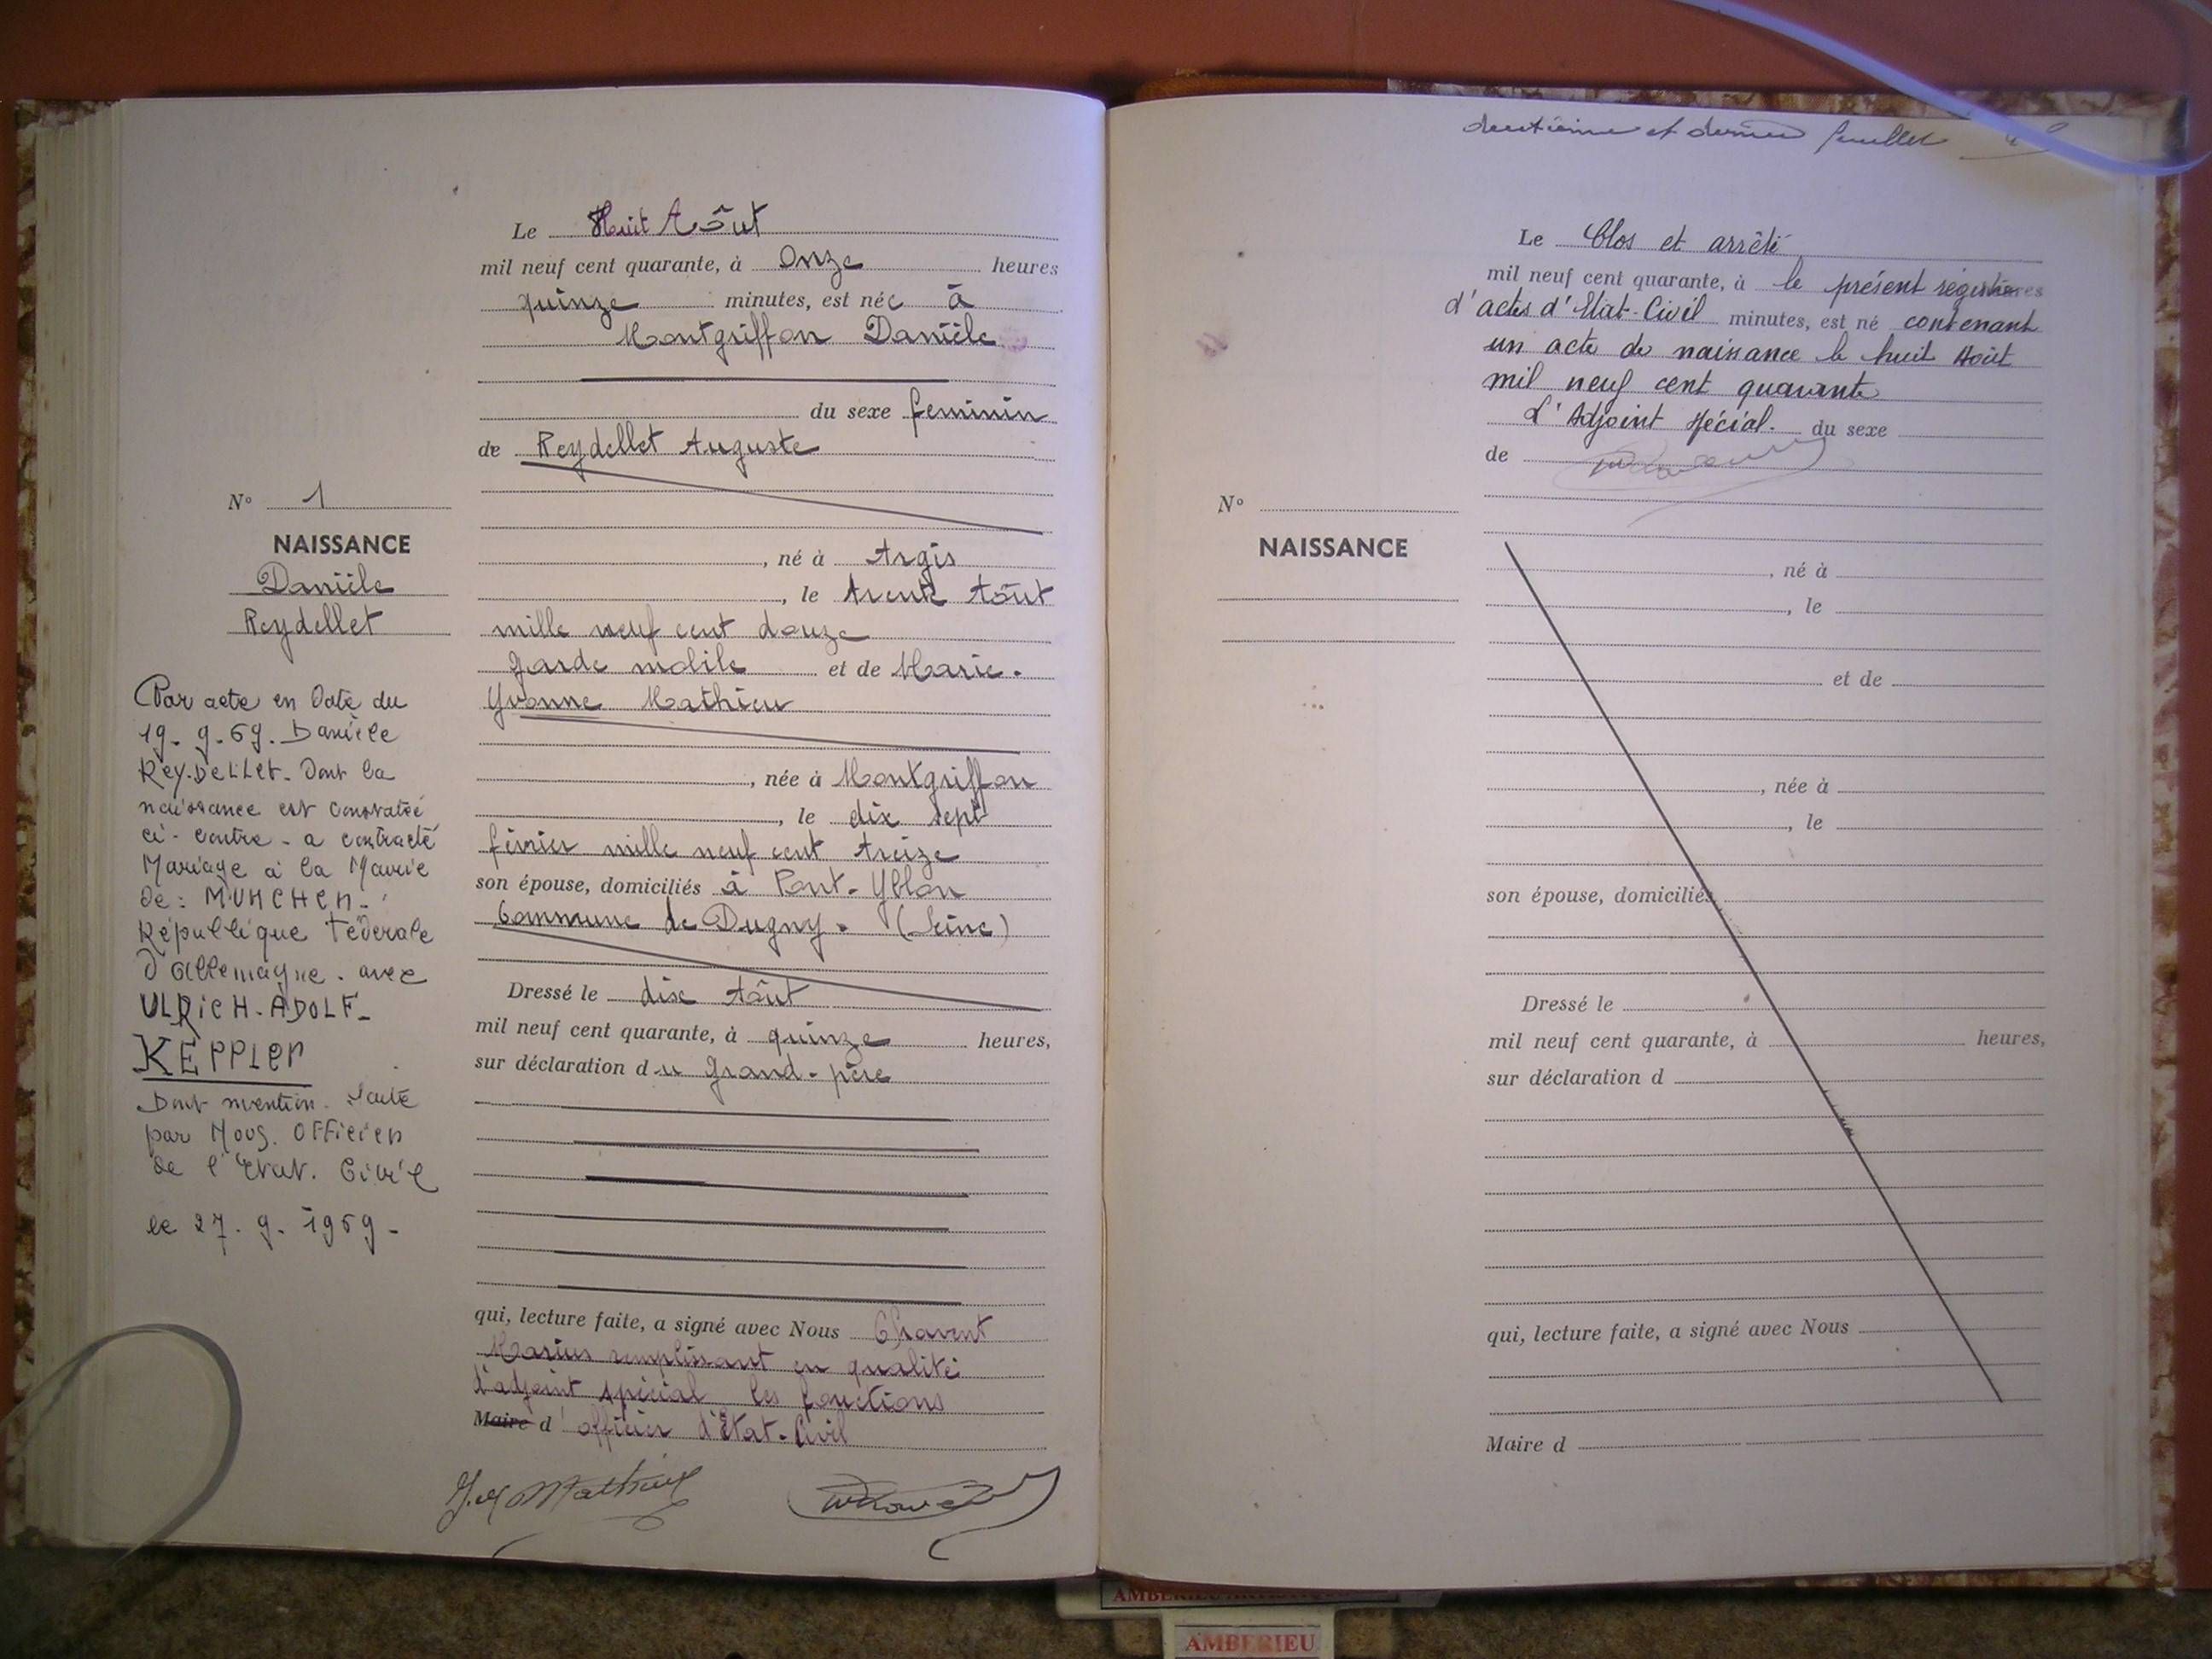 Le Huit Août
mil neuf cent quarante, à Onze heures
quinze minutes, est née à
Montgriffon Danièle
du sexe féminin
de Reydellet Auguste
N° 1
NAISSANCE
Danièle
Reydellet
, né à Argis
, le trente Août
mille neuf cent douze
garde mobile et de Marie-
Yvonne Mathieu
, née à Montgriffon
, le dix sept
février mille neuf cent treize
son épouse, domiciliés à Pont-Yblon
Commune de Dugny. (Seine)
Dressé le dix Août
mil neuf cent quarante, à quinze heures,
sur déclaration du Grand-père
qui, lecture faite, a signé avec Nous Chavent
Marius remplissant en qualité
d'adjoint spécial les fonctions
Maire d'officier d'Etat-Civil
Mathieu
Par acte en Date du
19-9-69. Danièle
REYDELLET. Dont la
naissance est constatée
ci-contre - a contracté
Mariage à la Mairie
de: MUNCHEN-
République Fédérale
d'Allemagne. avec
ULRICH-ADOLF-
KEPPLER
Dont mention. faite
par Nous. Officier
de l'Etat. Civil
le 27. 9. 1969-
deuxième et dernier feuillet
Le Clos et arrêté
mil neuf cent quarante, à le présent registre
d'actes d'Etat-Civil minutes, est né contenant
un acte de naissance le huit Août
mil neuf cent quarante
L'Adjoint spécial. du sexe
de
N°
NAISSANCE
, né à
, le
et de
, née à
, le
son épouse, domiciliés
Dressé le
mil neuf cent quarante, à heures,
sur déclaration d
qui, lecture faite, a signé avec Nous
Maire d
AMBERIEU
AMBERIEU